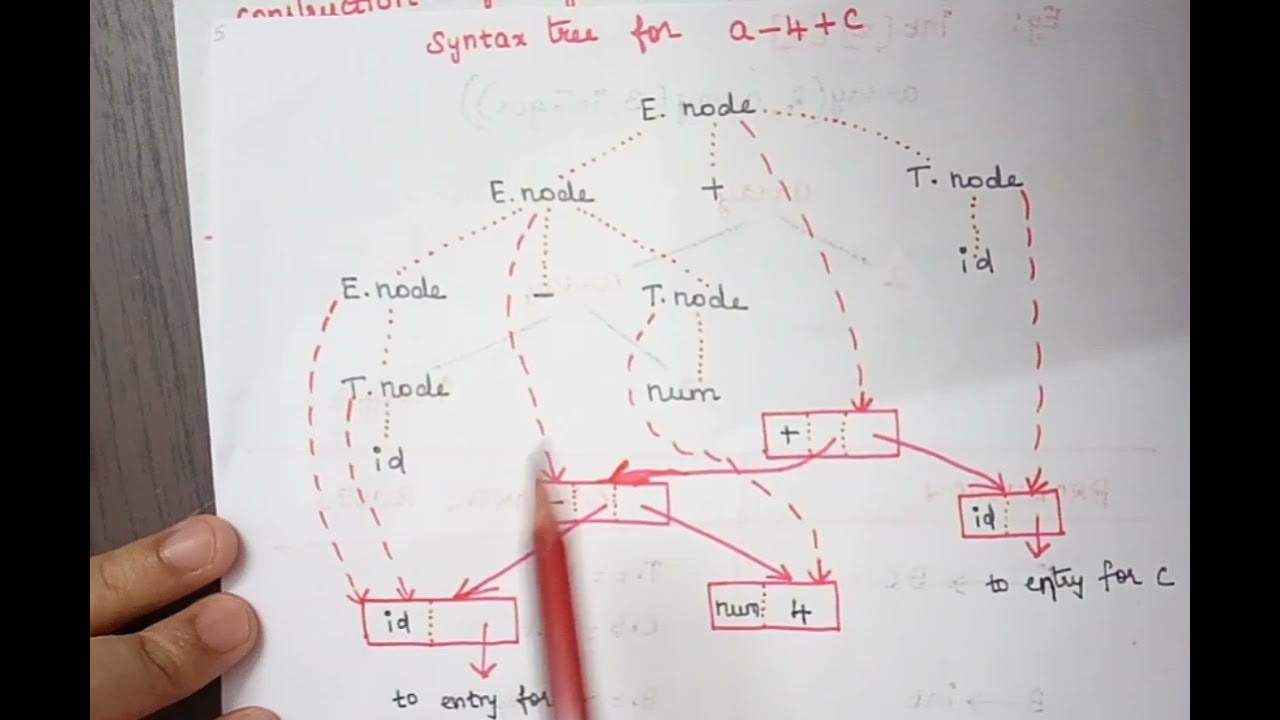 construction
5
Syntax tree for a-4+c
E. node
E. node + T. node
id
E. node - T. node
T. node num
+
id
- id
to entry for c
num 4
id
to entry for